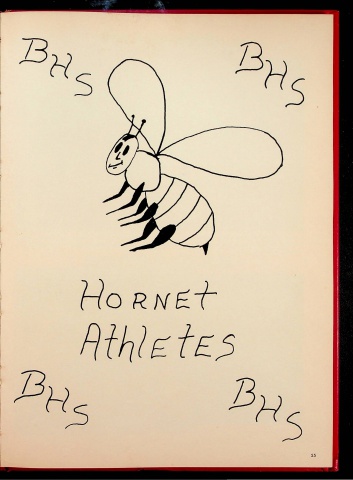 BHS
BHS
HORNET
AthlETES
BHS
BHS